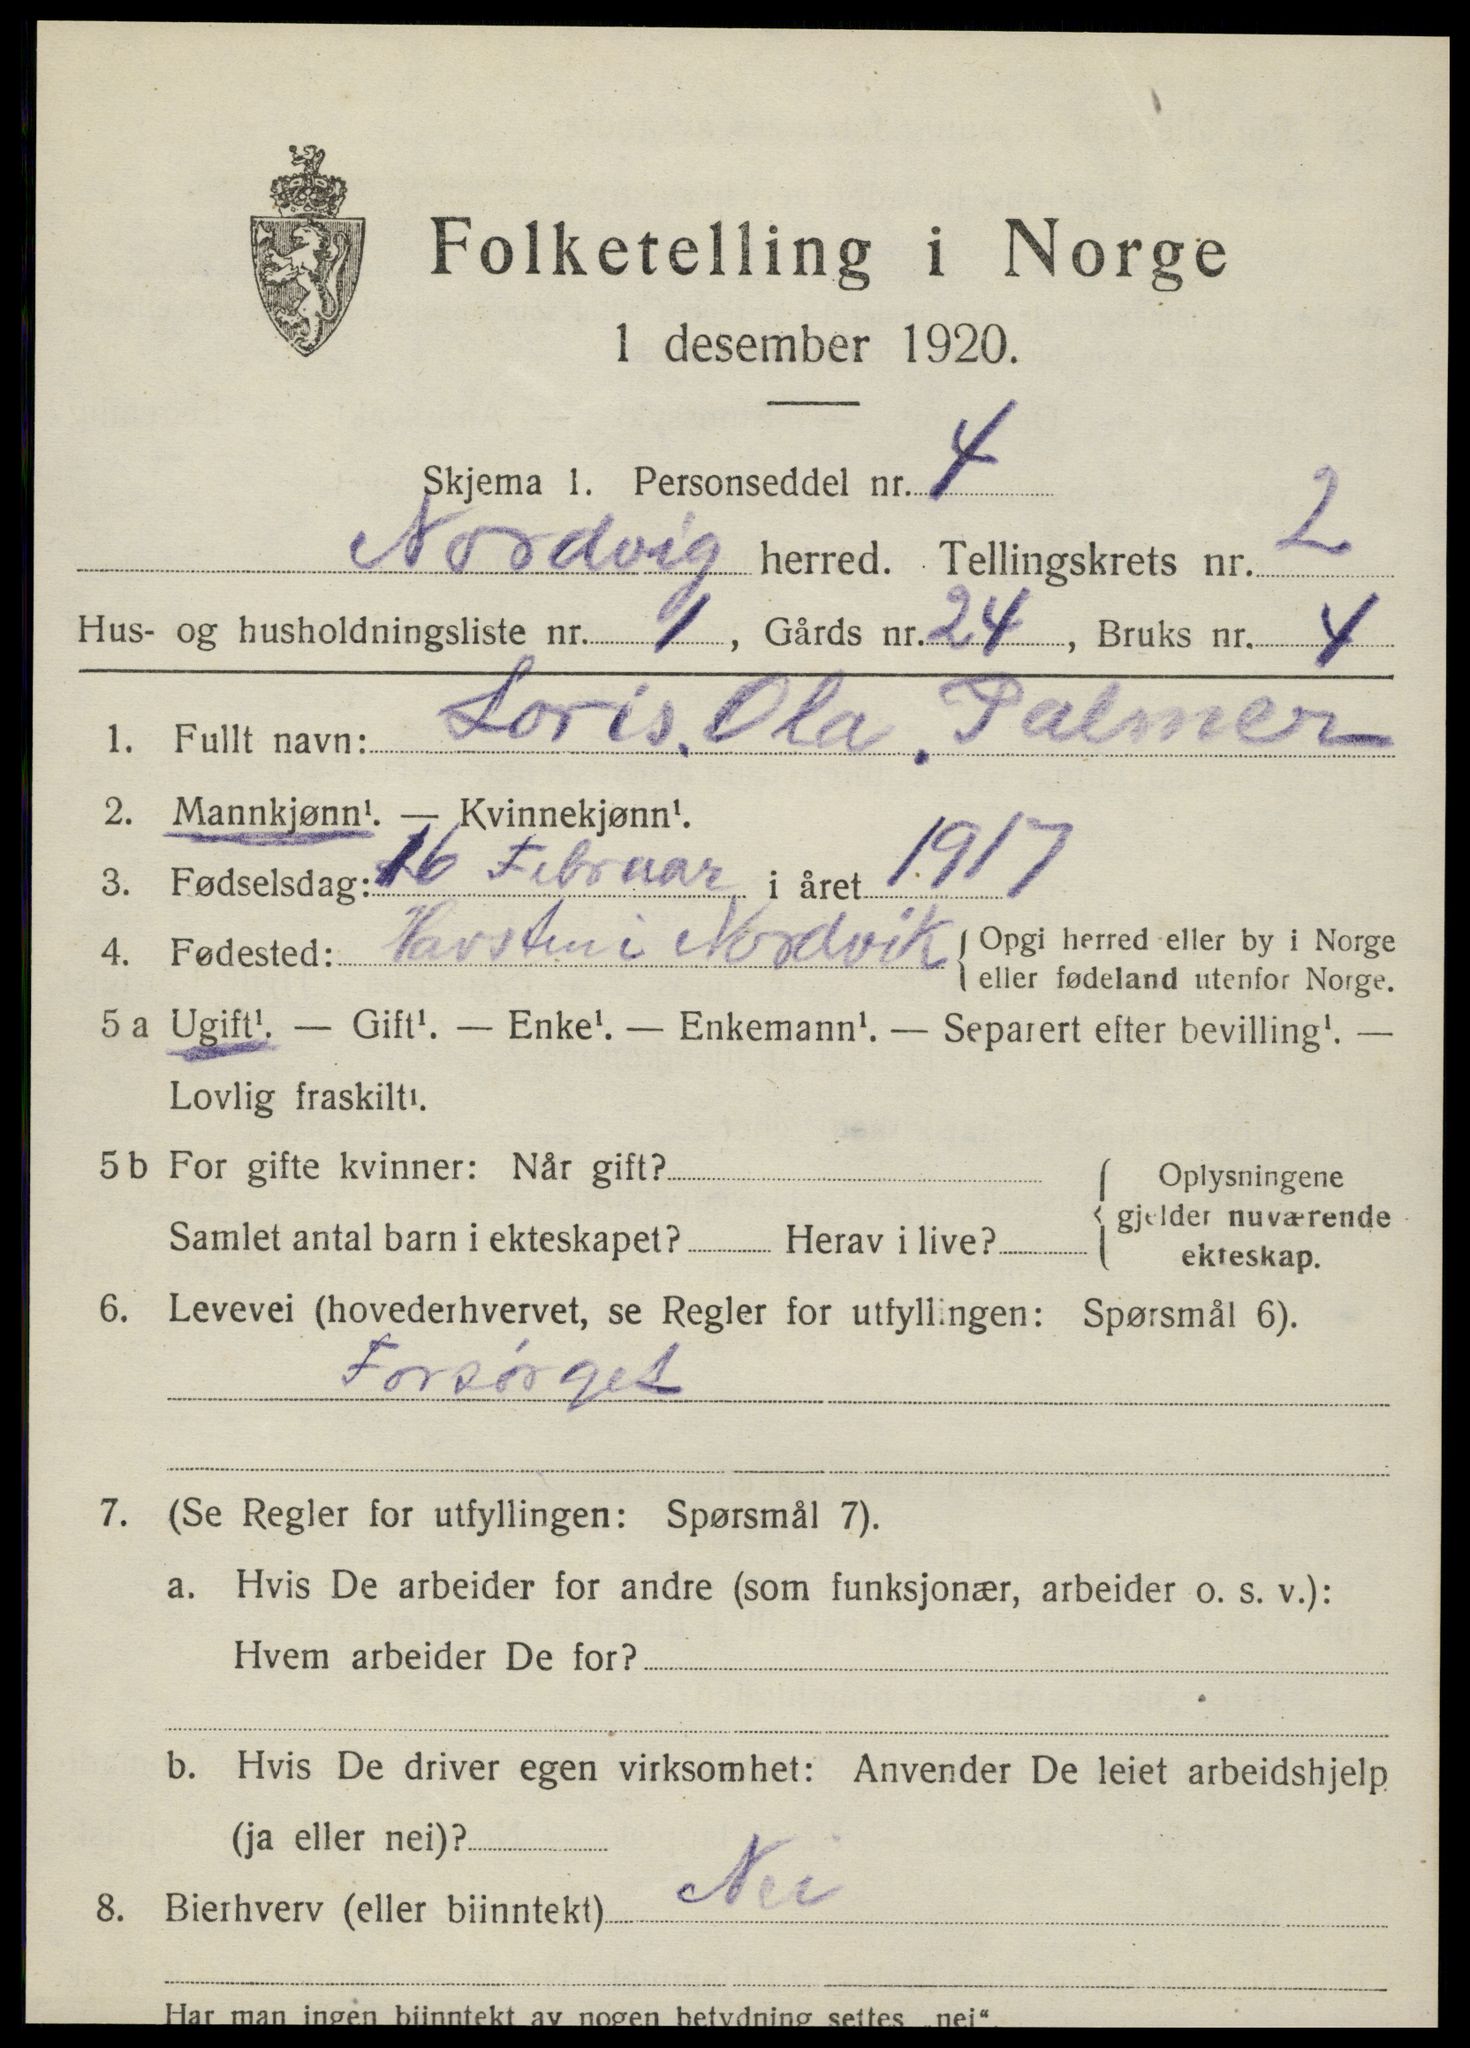 Folketelling i Norge
1 desember 1920.
Skjema 1. Personseddel nr. 4
Nordvig herred. Tellingskrets nr. 2
Hus- og husholdningsliste nr. 1, Gårds nr. 24, Bruks nr. 4
1. Fullt navn: Loris. Ola. Palmer
2. Mannkjønn¹. — Kvinnekjønn¹.
3. Fødselsdag: 16 Februar i året 1917
4. Fødested: i Nordvik { Opgi herred eller by i Norge
eller fødeland utenfor Norge.
5 a Ugift¹. — Gift¹. — Enke¹. — Enkemann¹. — Separert efter bevilling¹. —
Lovlig fraskilt¹.
5 b For gifte kvinner: Når gift? { Oplysningene
gjelder nuværende
Samlet antal barn i ekteskapet? Herav i live?
ekteskap.
6. Levevei (hovederhvervet, se Regler for utfyllingen: Spørsmål 6).
Forsørget
7. (Se Regler for utfyllingen: Spørsmål 7).
a. Hvis De arbeider for andre (som funksjonær, arbeider o. s. v.):
Hvem arbeider De for?
b. Hvis De driver egen virksomhet: Anvender De leiet arbeidshjelp
(ja eller nei)?
8. Bierhverv (eller biinntekt) Nei
Har man ingen biinntekt av nogen betydning settes „nei“.